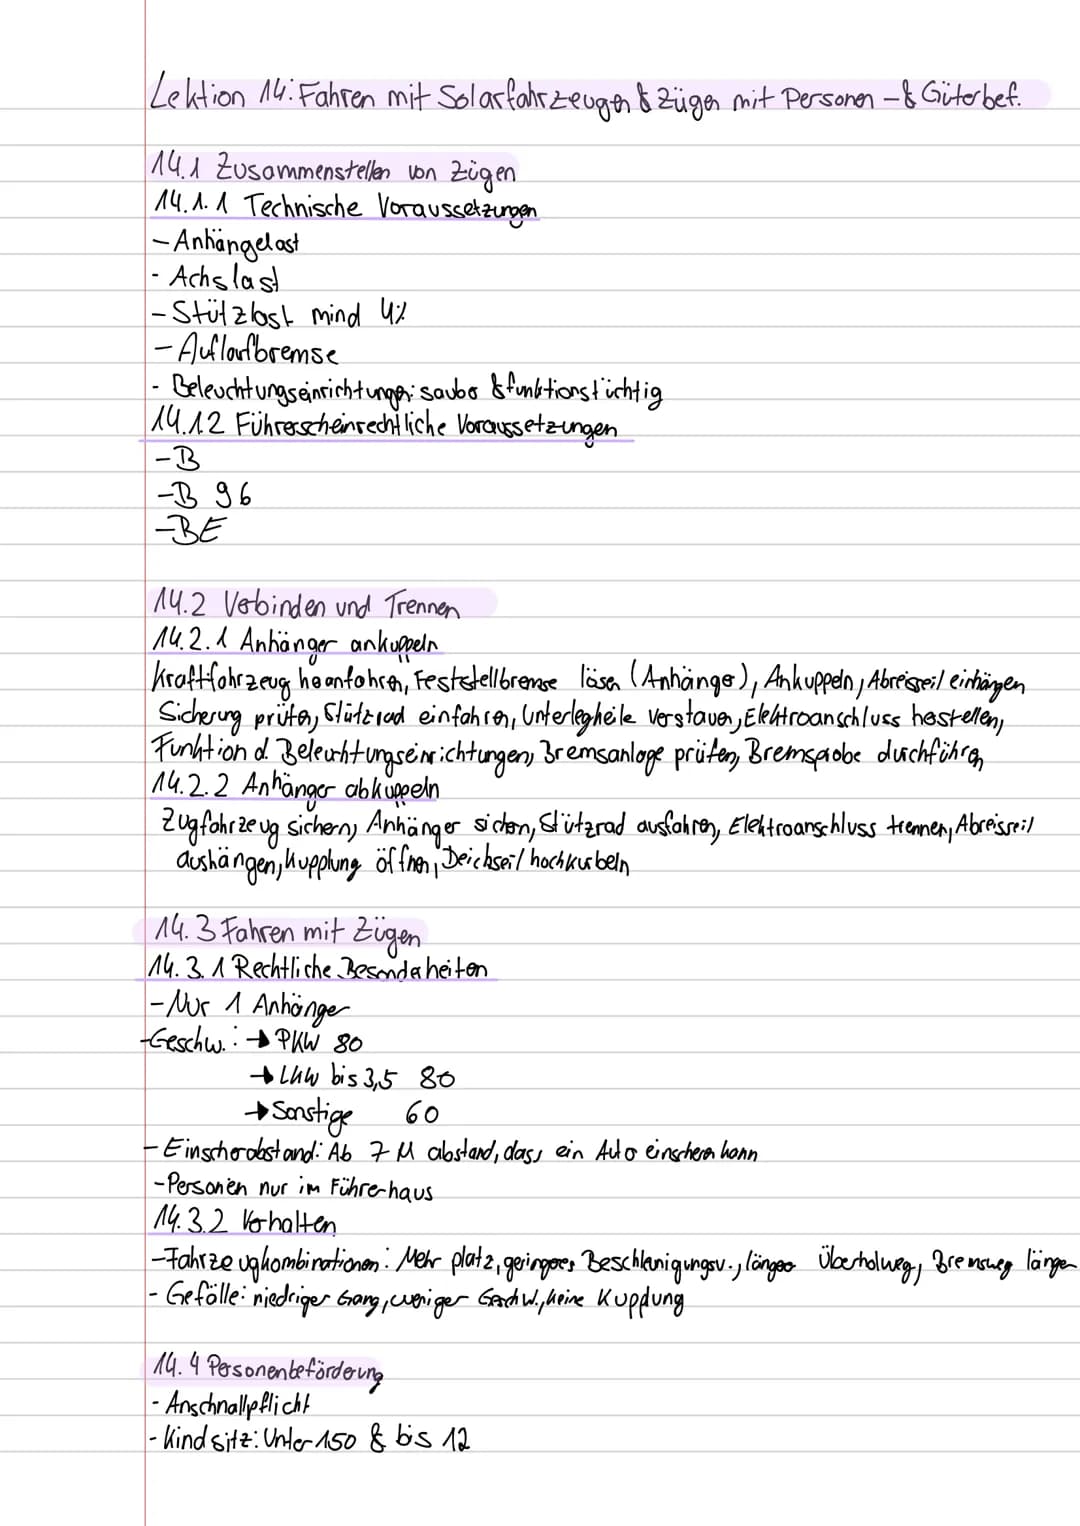 Lektion 14: Fahren mit Solarfahrzeugen & Zügen mit Personen - & Güterbef.
14.1 Zusammenstellen von Zügen
14.1.1 Technische Voraussetzungen
- Anhängelast
- Achslast
- Stützlast mind 4%
- Auflaufbremse
- Beleuchtungseinrichtungen: sauber & funktionstüchtig
14.1.2 Führerscheinrechtliche Voraussetzungen
- B
- B 96
- BE
14.2 Verbinden und Trennen
14.2.1 Anhänger ankuppeln
Kraftfahrzeug heranfahren, Feststellbremse lösen (Anhänger), Ankuppeln, Abreisseil einhängen
Sicherung prüfen, Stützrad einfahren, Unterlegkeile verstauen, Elektroanschluss herstellen,
Funktion d. Beleuchtungseinrichtungen, Bremsanlage prüfen, Bremsprobe durchführen
14.2.2 Anhänger abkuppeln
Zugfahrzeug sichern, Anhänger sichern, Stützrad ausfahren, Elektroanschluss trennen, Abreisseil
aushängen, Kupplung öffnen, Deichseil hochkurbeln
14.3 Fahren mit Zügen
14.3.1 Rechtliche Besonderheiten
- Nur 1 Anhänger
- Geschw.: → PKW 80
→ LKW bis 3,5 80
→ Sonstige 60
- Einscherabstand: Ab 7 M abstand, dass ein Auto einscheren kann
- Personen nur im Führerhaus
14.3.2 Verhalten
- Fahrzeugkombinationen: Mehr platz, geringeres Beschleunigungsv., länger Überholweg, Bremsweg länger
- Gefälle: niedriger Gang, weniger Geschw., keine Kupplung
14.4 Personenbeförderung
- Anschnallpflicht
- Kindsitz: Unter 150 & bis 12